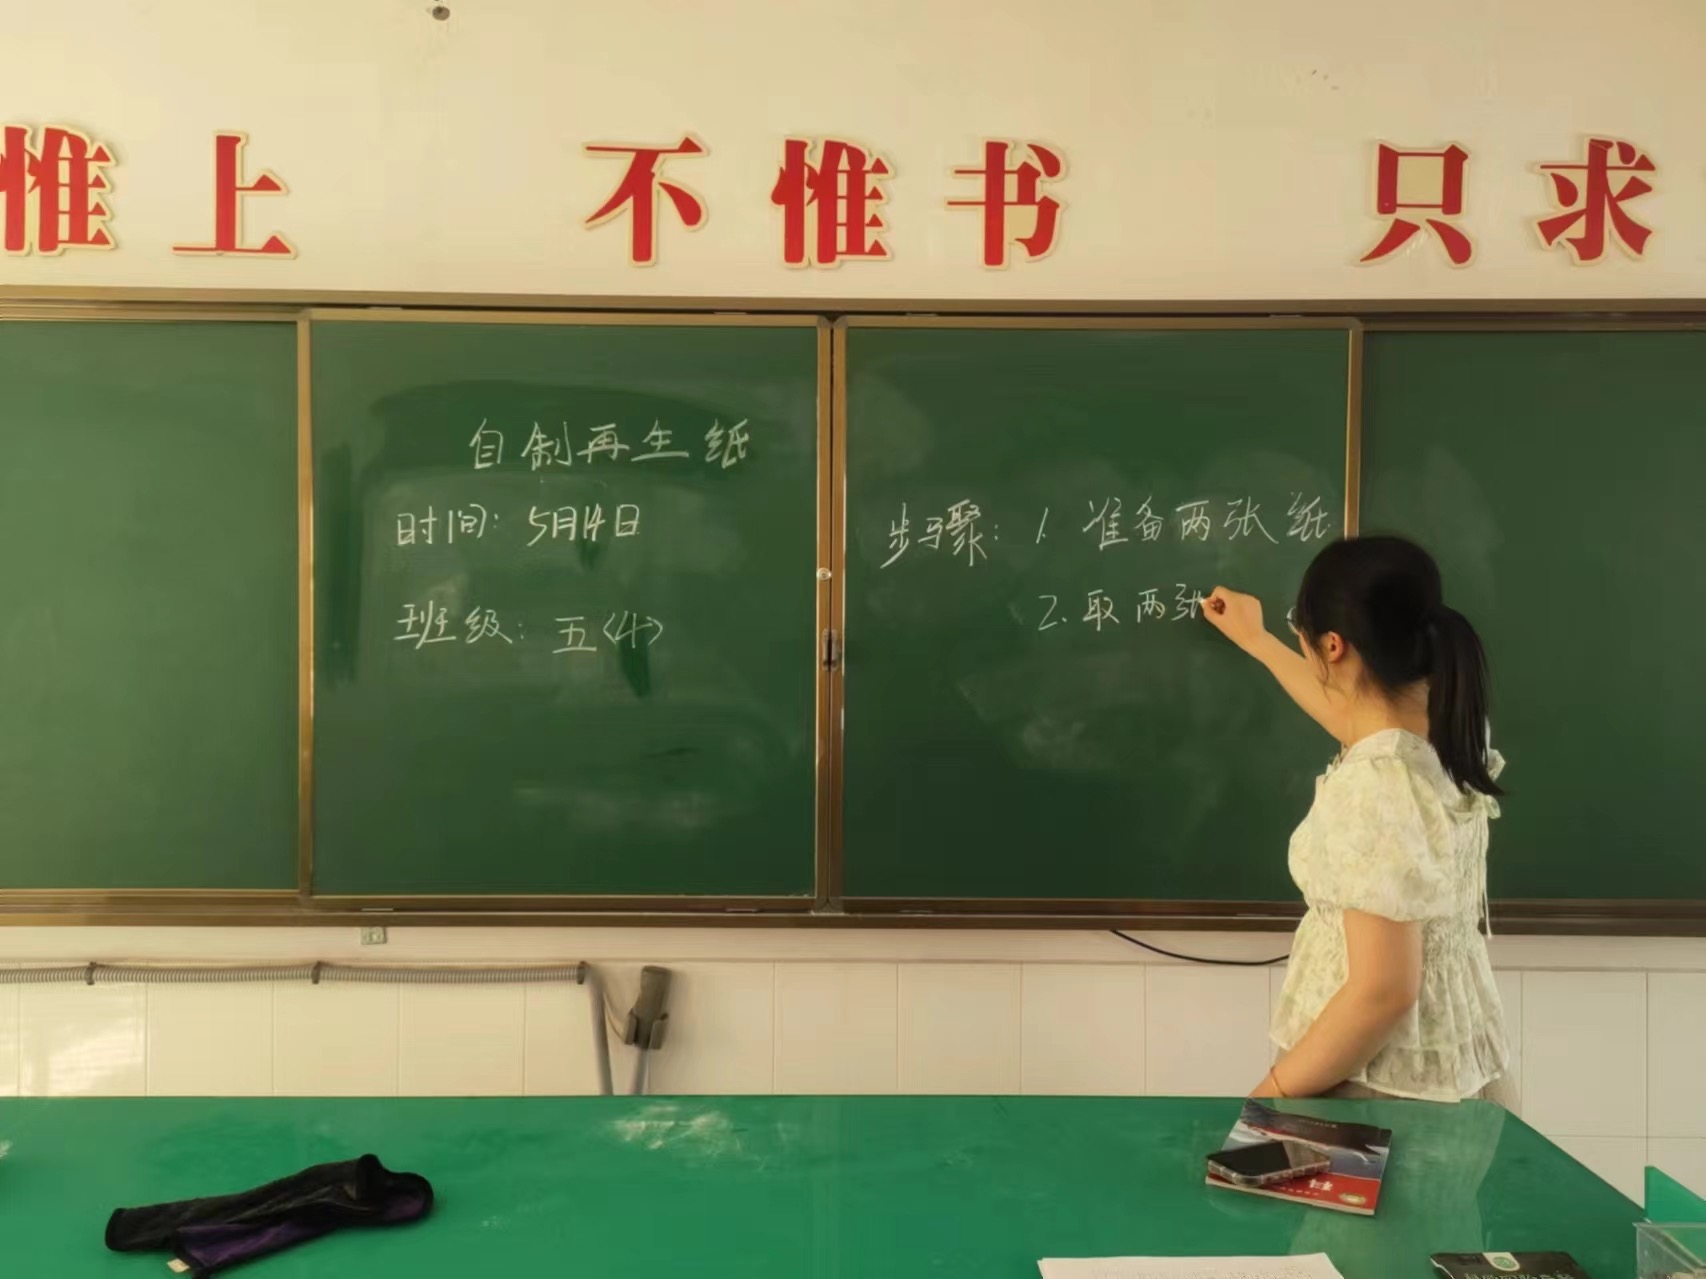 惟上 不惟书 只求
自制再生纸
时间：5月14日
班级：五〈4〉
步骤：1. 准备两张纸
2. 取两张